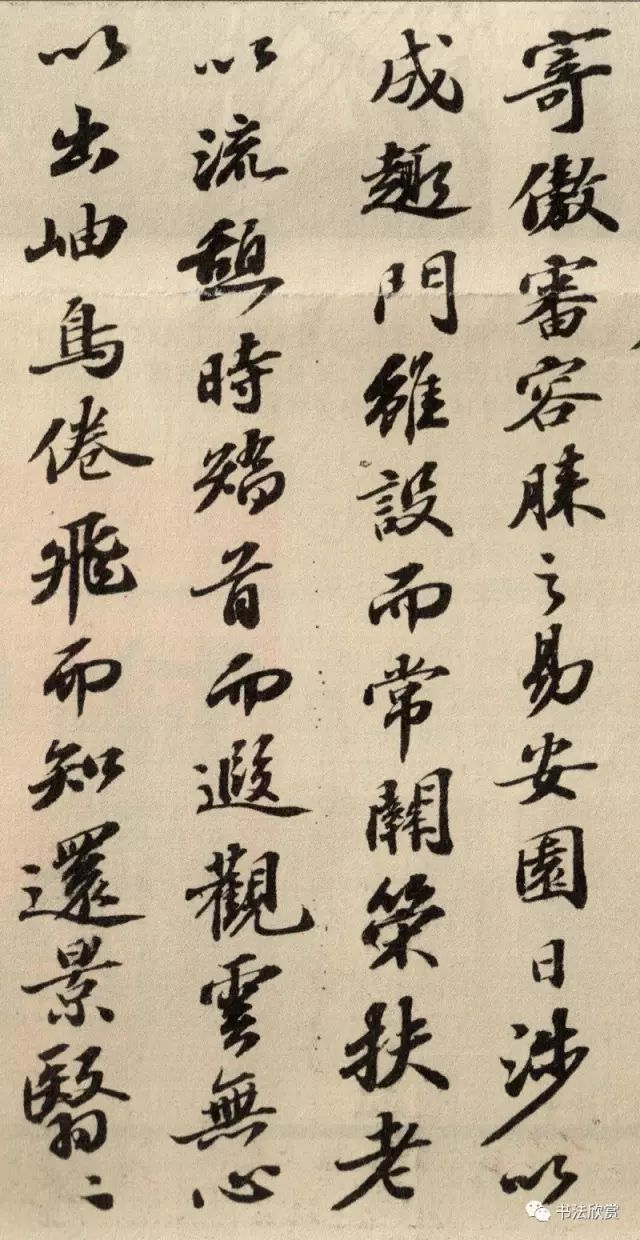 寄傲審容膝之易安園日涉以
成趣門雖設而常關策扶老
以流憩時矯首而遐觀雲無心
以出岫鳥倦飛而知還景翳〻
书法欣赏